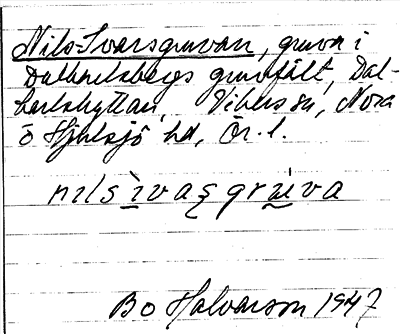 Nils-Ivarsgruvan, gruva i
Dalkarlsbergs gruvfält, Dal-
karlshyttan, Vikers sn, Nora
o Hjulsjö hd, Ör. l.
nilsivasgruva
Bo Halvarson 1947